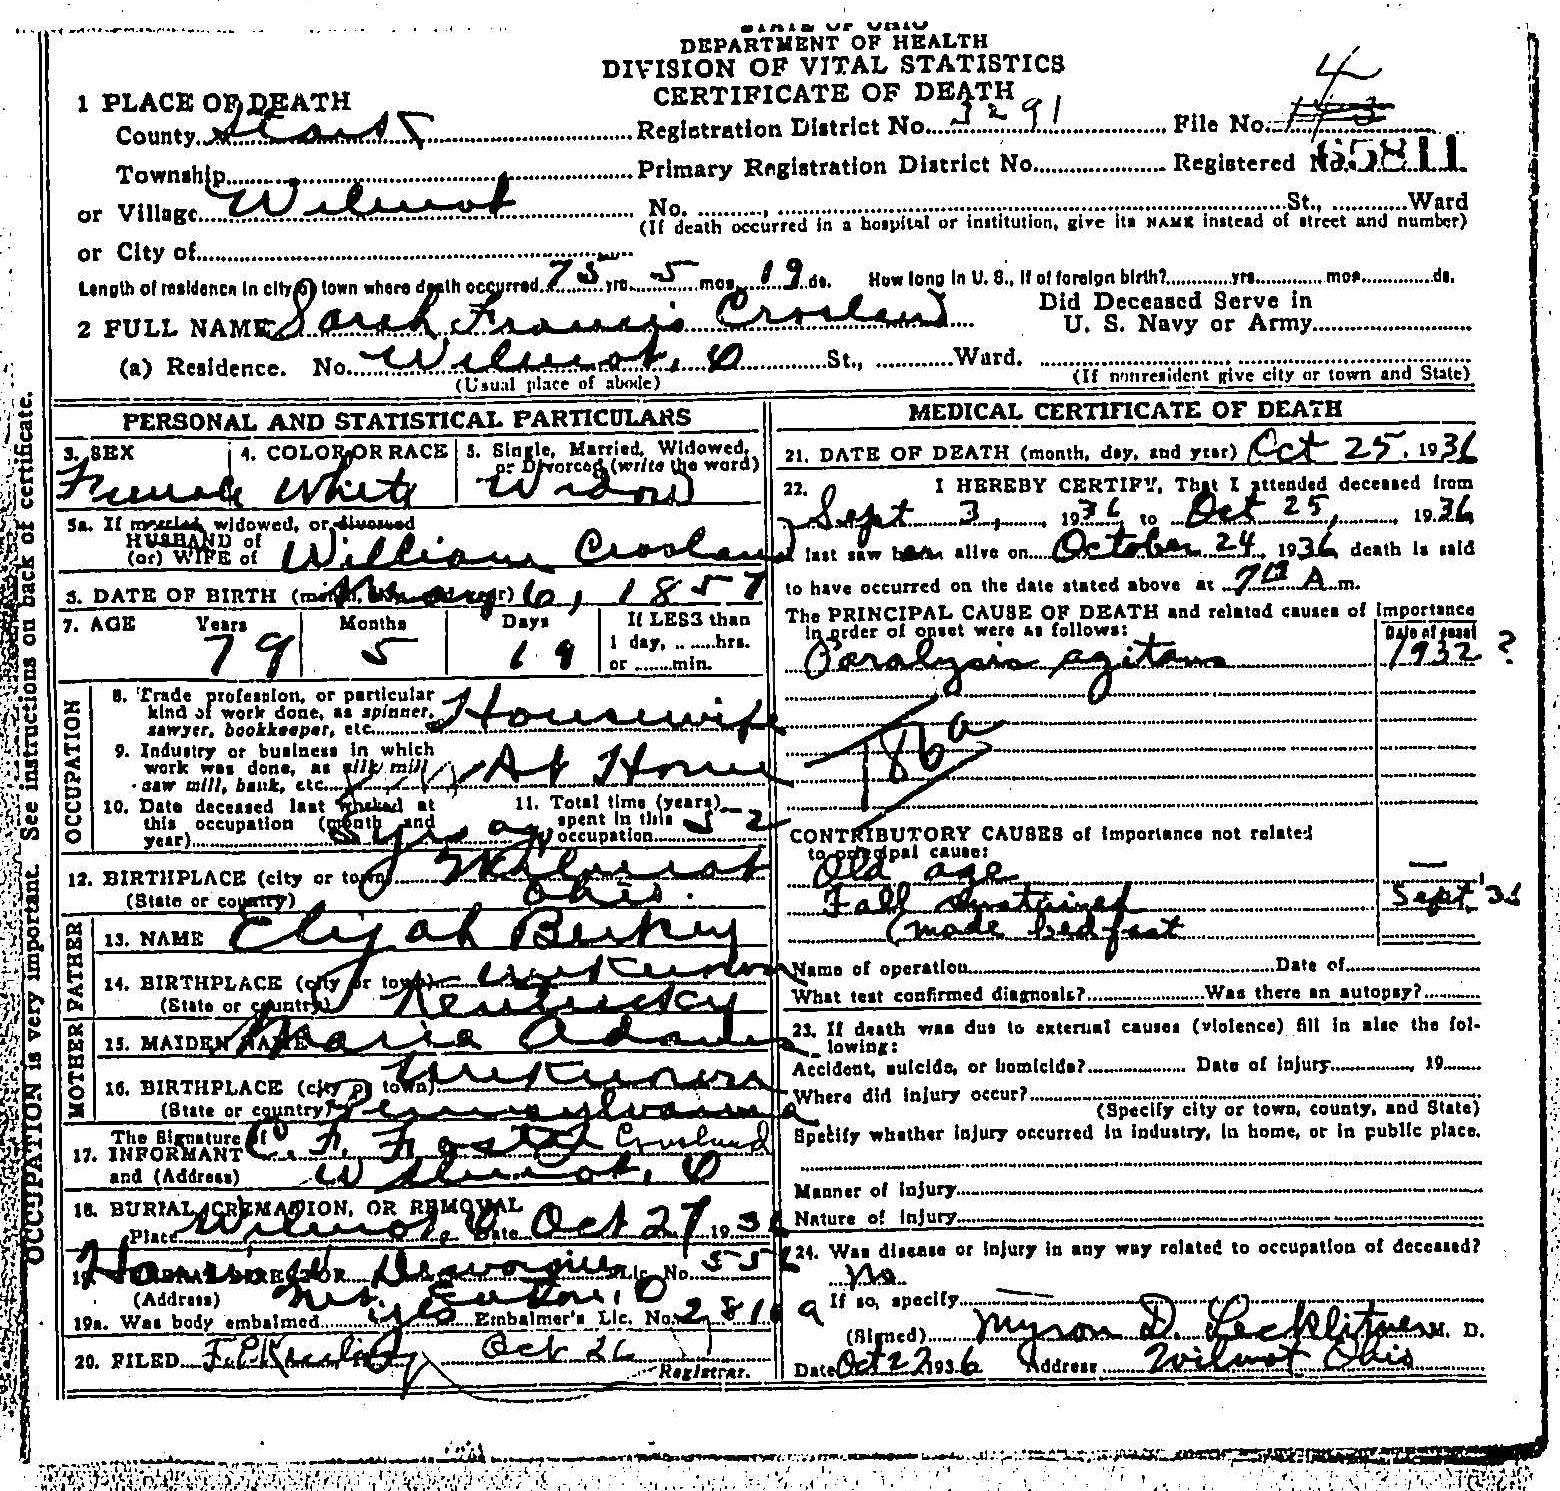 STATE OF OHIO
DEPARTMENT OF HEALTH
DIVISION OF VITAL STATISTICS
CERTIFICATE OF DEATH
1 PLACE OF DEATH
County Stark Registration District No. 3291 File No. 4
Township Primary Registration District No. Registered No. 65811
or Village Wilmot No. , St., Ward
(If death occurred in a hospital or institution, give its NAME instead of street and number)
or City of
Length of residence in city or town where death occurred 75 yrs. 5 mos. 19 ds. How long in U. S., if of foreign birth? yrs. mos. ds.
2 FULL NAME Sarah Francis Crosland Did Deceased Serve in U. S. Navy or Army
(a) Residence. No. Wilmot, O St., Ward.
(Usual place of abode) (If nonresident give city or town and State)
OCCUPATION is very important. See instructions on back of certificate.
PERSONAL AND STATISTICAL PARTICULARS
3. SEX Female
4. COLOR OR RACE White
5. Single, Married, Widowed, or Divorced (write the word) Widow
5a. If married, widowed, or divorced
HUSBAND of
(or) WIFE of William Crosland
6. DATE OF BIRTH (month, day, and year) May 6, 1857
7. AGE Years 79 Months 5 Days 19 If LESS than 1 day, hrs. or min.
OCCUPATION
8. Trade profession, or particular kind of work done, as spinner, sawyer, bookkeeper, etc. Housewife
9. Industry or business in which work was done, as silk mill, saw mill, bank, etc. At Home
10. Date deceased last worked at this occupation (month and year) yrs ago
11. Total time (years) spent in this occupation 52
12. BIRTHPLACE (city or town) Wilmot
(State or country) Ohio.
FATHER
13. NAME Elijah
14. BIRTHPLACE (city or town) unknown
(State or country) Kentucky
MOTHER
15. MAIDEN NAME Maria Adams
16. BIRTHPLACE (city or town) unknown
(State or country) Pennsylvania
17. The Signature of INFORMANT C. F. Crosland
and (Address) Wilmot, O
18. BURIAL, CREMATION, OR REMOVAL
Place Wilmot, O Date Oct 27 1936
19. FUNERAL DIRECTOR Lic. No. 556
(Address) O
19a. Was body embalmed yes Embalmer's Lic. No. 2810 a
20. FILED Oct 26 Registrar.
MEDICAL CERTIFICATE OF DEATH
21. DATE OF DEATH (month, day, and year) Oct 25, 1936
22. I HEREBY CERTIFY, That I attended deceased from
Sept 3, 1936 to Oct 25, 1936
I last saw her alive on October 24, 1936 death is said
to have occurred on the date stated above at 7 A m.
The PRINCIPAL CAUSE OF DEATH and related causes of importance
in order of onset were as follows: Date of onset
Paralysis agitans 1932 ?
186a
CONTRIBUTORY CAUSES of importance not related
to principal cause:
Old age —
Fall sustained Sept '36
(made bedfast
Name of operation Date of
What test confirmed diagnosis? Was there an autopsy?
23. If death was due to external causes (violence) fill in also the fol-
lowing:
Accident, suicide, or homicide? Date of injury , 19
Where did injury occur?
(Specify city or town, county, and State)
Specify whether injury occurred in industry, in home, or in public place.
Manner of injury
Nature of injury
24. Was disease or injury in any way related to occupation of deceased?
No
If so, specify —
(Signed) Myron D. Lecklitner M. D.
Date Oct 27 1936 Address Wilmot Ohio